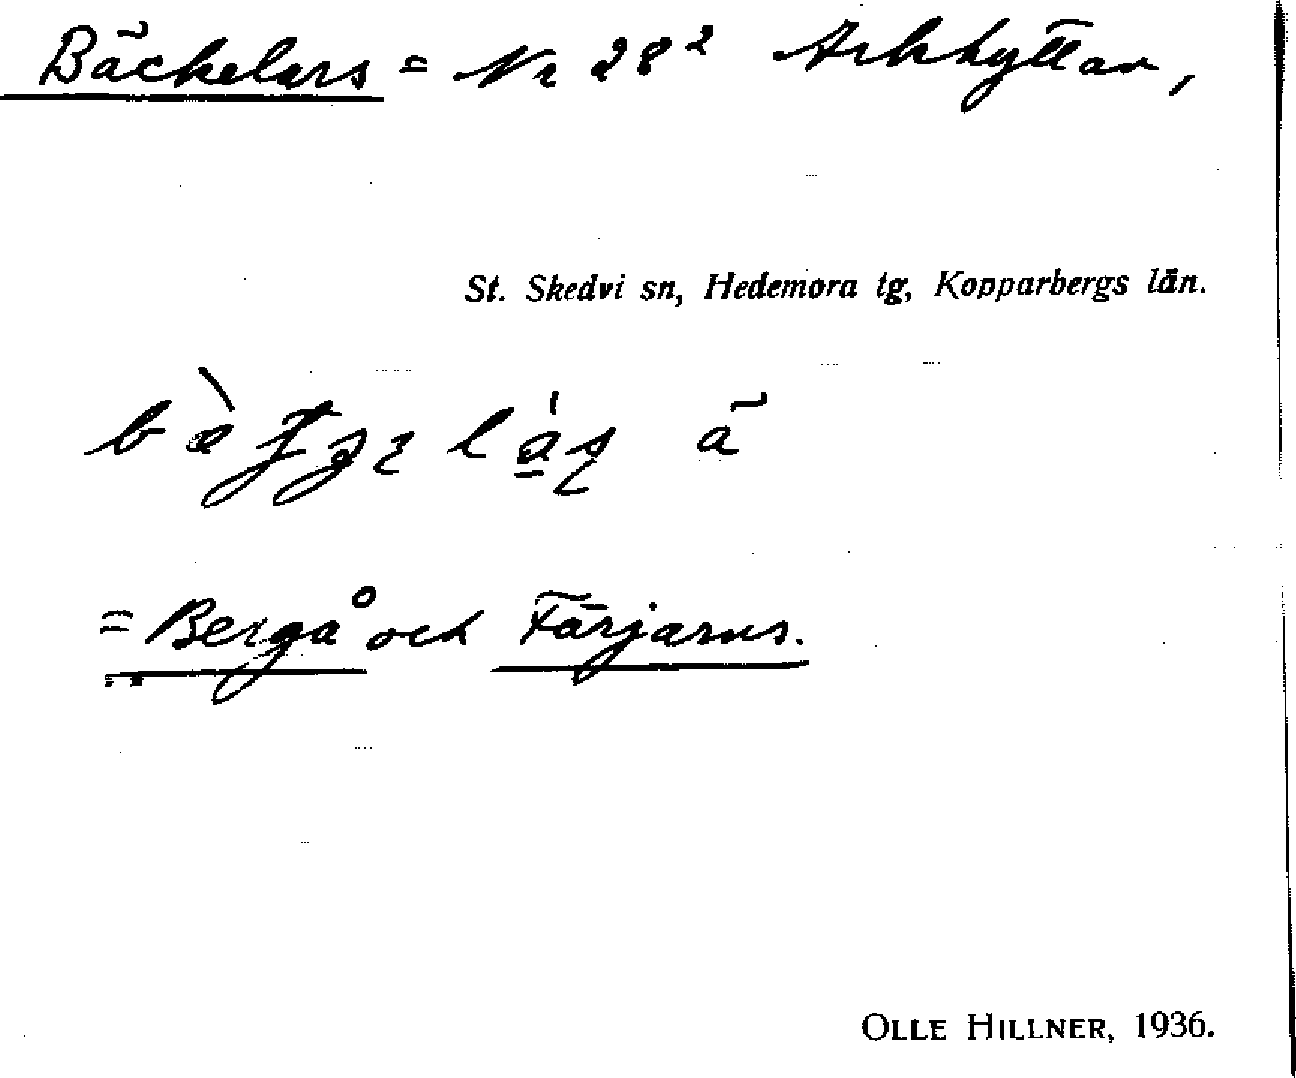 Bäckelars = Nr 28² Arkhyttan,
St. Skedvi sn, Hedemora tg, Kopparbergs län.
ä
= Bergå och Färjarns.
OLLE HILLNER, 1936.